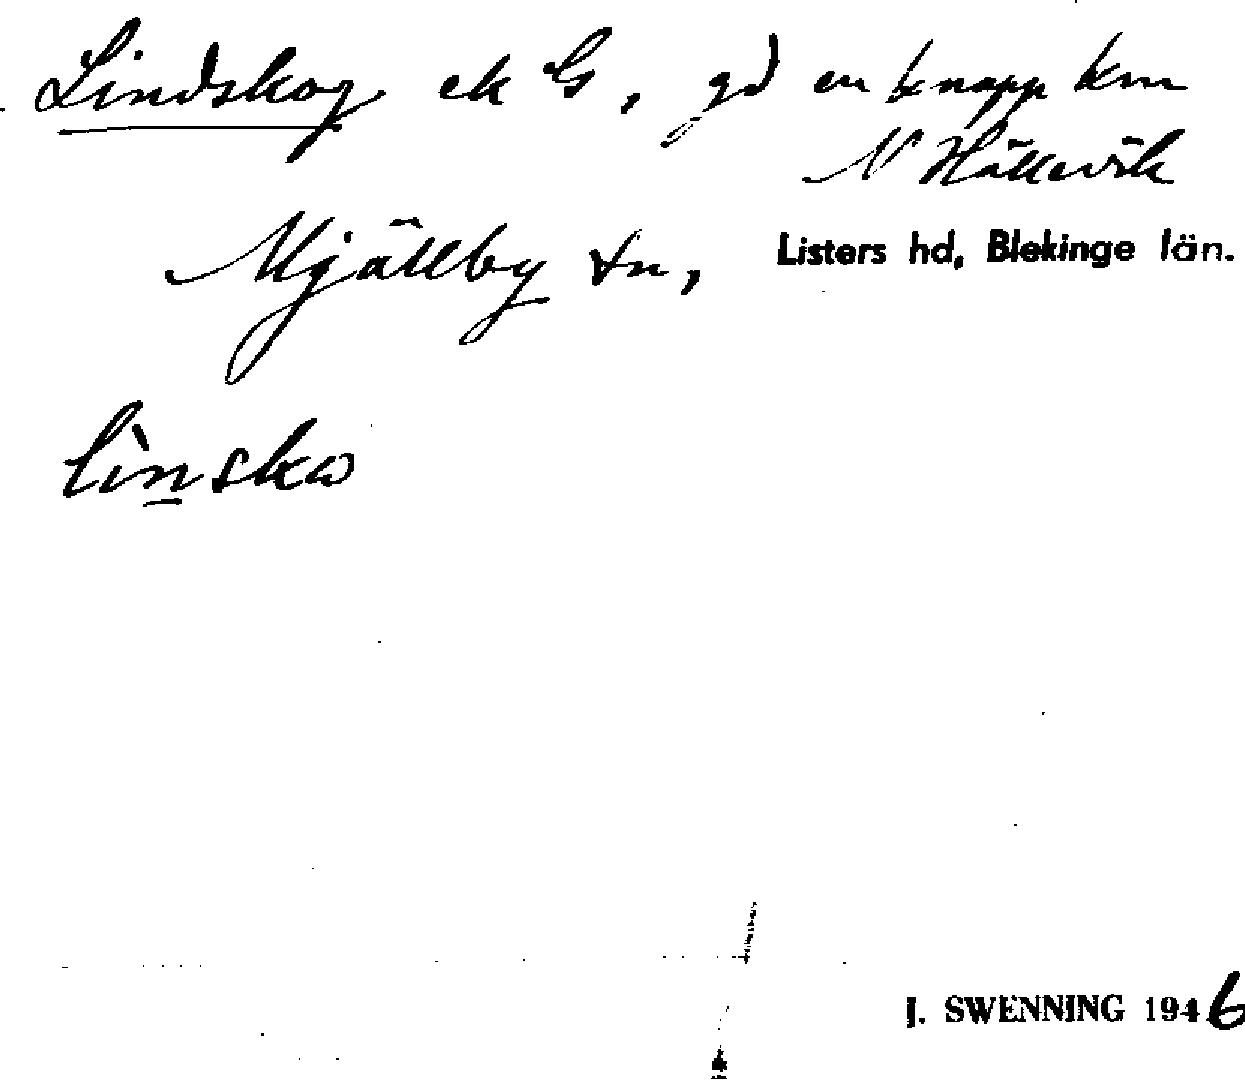 Lindskog ek G, gd en knapp km
N Hällevik
Mjällby sn,
Listers hd, Blekinge län.
lìnsko
J. SWENNING 1946